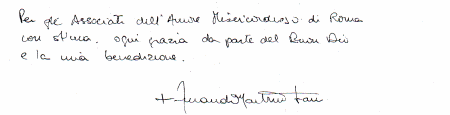 Per gli Associati dell'Amore Misericordioso di Roma
con stima. ogni grazia da parte del Buon Dio
e la mia benedizione.
+